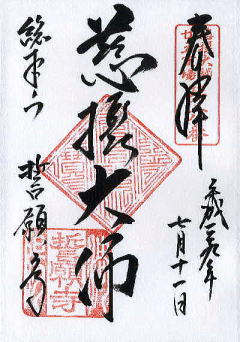 奉拝
平成二九年
七月十一日
慈摂大師
総本山
誓願寺
誓願寺